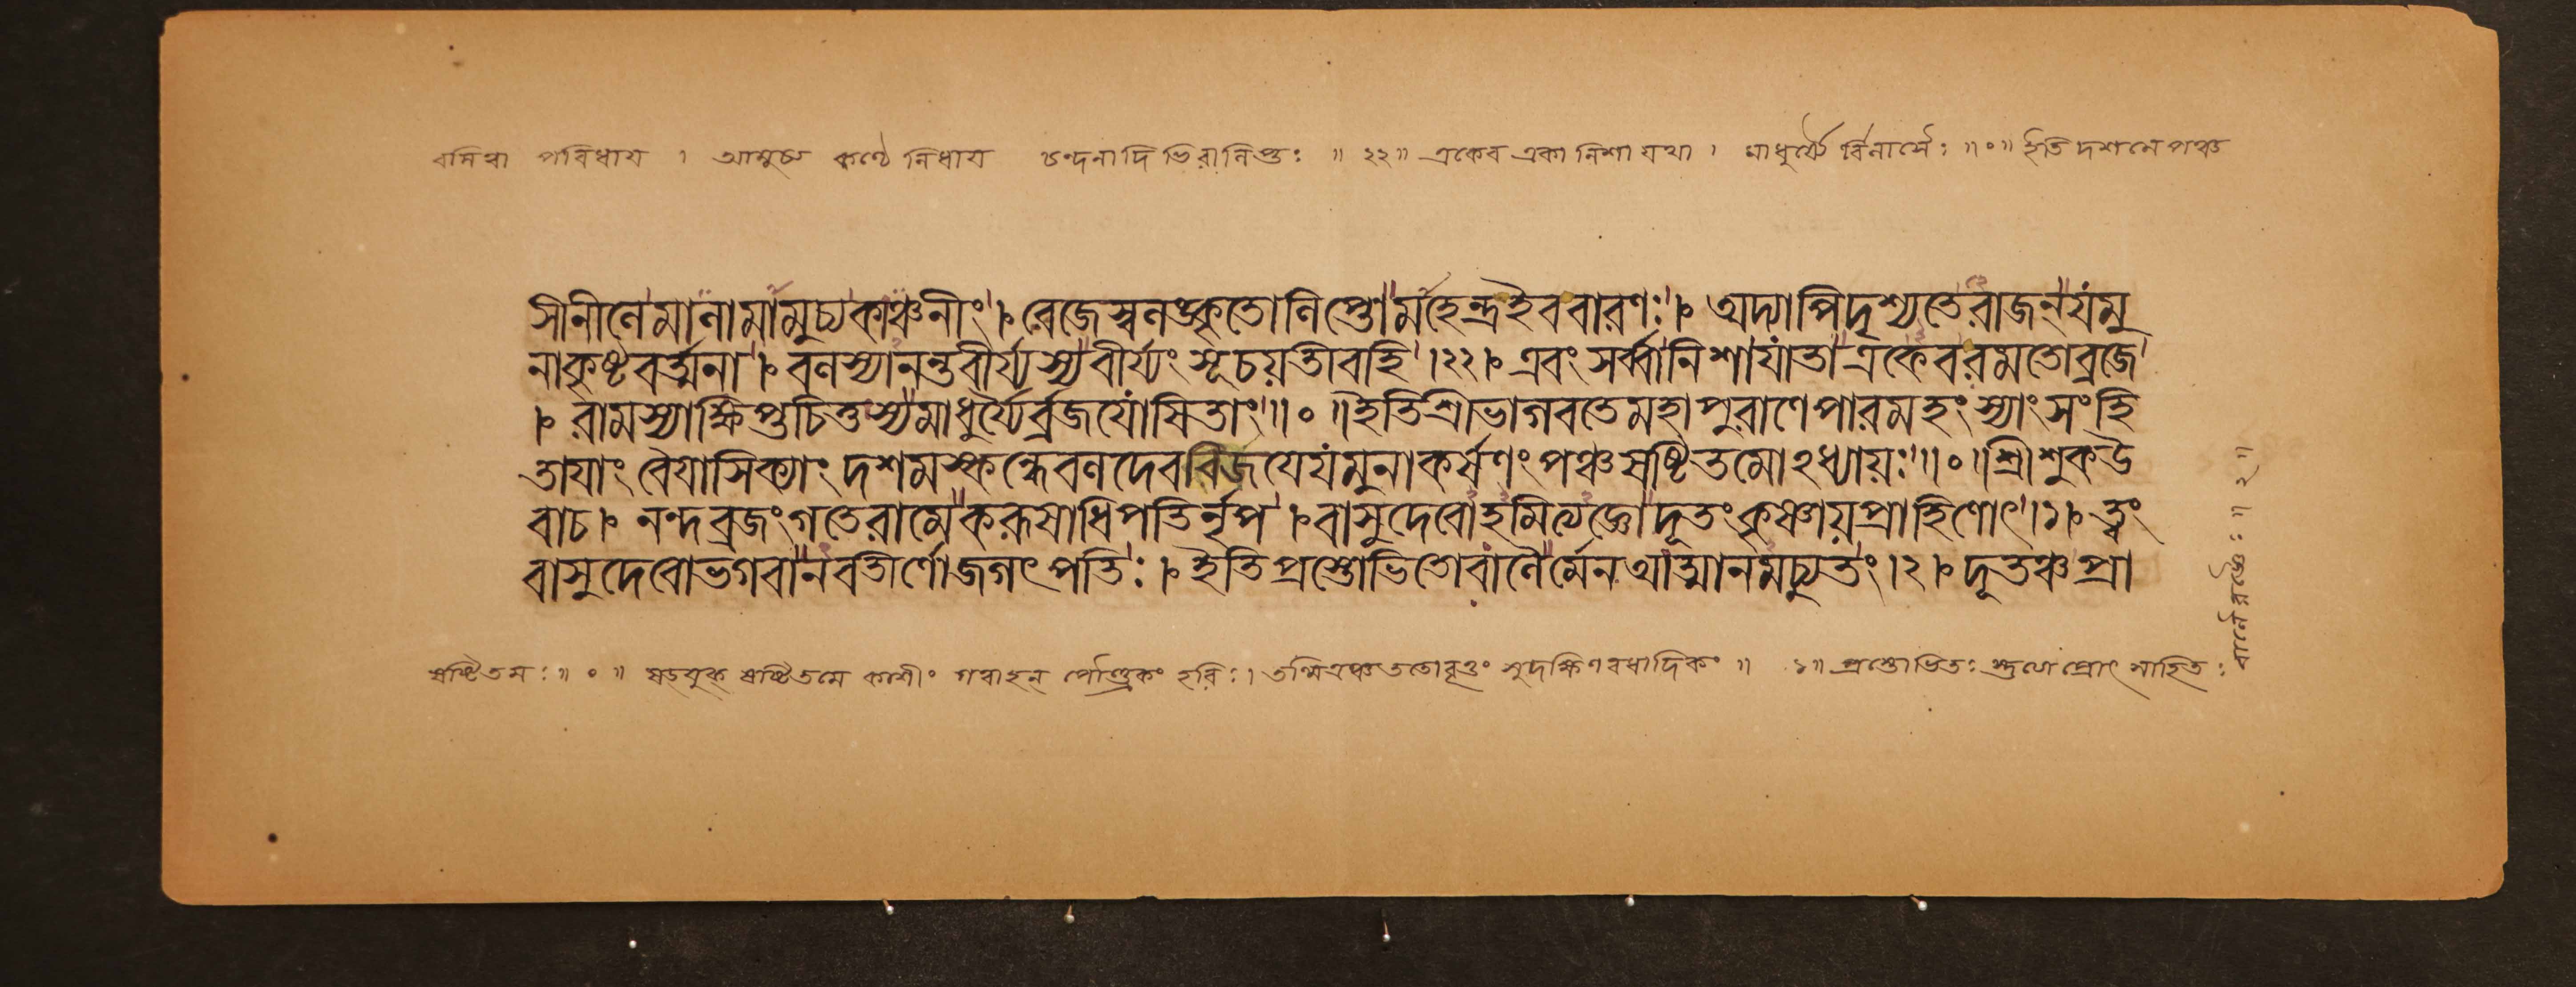 বসিত্বা পরিধায । আমুচ্য কণ্ঠে নিধায চন্দনাদিভিরালিপ্তঃ ॥ ২২॥ একেব একা নিশা যথা । মাধুর্য্যৈ র্বিলাসৈঃ ॥०॥ ইতি দশমে পঞ্চ
সীনীলেমালামামুচ্যকাঞ্চনীং । রেজেস্বলঙ্কৃতোলিপ্তোমহেন্দ্রইববারণঃ । অদ্যাপিদৃশ্যতেরাজন্যমু
নাকৃষ্টবর্ত্মনা । বলস্যানন্তবীর্য্যস্যবীর্য্যংসূচয়তীবহি ।২২। এবংসর্ব্বানিশাযাতাএকেবরমতোব্রজে
। রামস্যাক্ষিপ্তচিত্তস্যমাধুর্য্যৈর্ব্রজযোষিতাং ॥०॥ ইতিশ্রীভাগবতেমহাপুরাণেপারমহংস্যাংসংহি
তাযাংবৈযাসিক্যাংদশমস্কন্ধেবলদেববিজযেযমুনাকর্ষণংপঞ্চষষ্টিতমোঽধ্যায়ঃ ॥०॥ শ্রীশুকউ
বাচ । নন্দব্রজংগতেরামেকরূষাধিপতির্নৃপ । বাসুদেবোহমিত্যজ্ঞোদূতংকৃষ্ণায়প্রাহিণোৎ ।১। ত্বং
বাসুদেবোভগবানবতীর্ণোজগৎপতিঃ । ইতিপ্রস্তোভিতোবালৈর্মেনআত্মানমচ্যুতং ।২। দূতঞ্চপ্রা
ষষ্টিতমঃ ॥ ० ॥ ষড্‌যুক্‌ ষষ্টিতমে কাশীং গত্বাহন্‌ পৌণ্ড্রকং হরিঃ । ততোবৃত্তং সুদক্ষিণবধাদিকং ॥ ১॥ প্রস্তোভিতঃ প্রোৎসাহিতঃ
বালৈরজ্ঞৈঃ ॥ ২॥